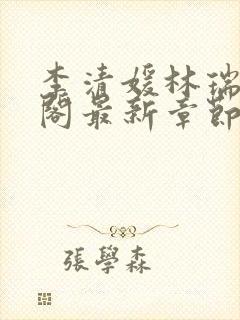 李清媛林瑞
閣最新章節
張學森